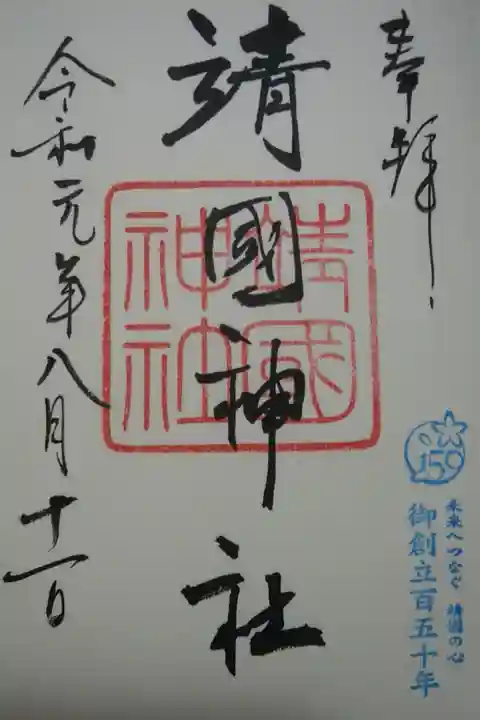 奉拝
靖國神社
靖國
神社
令和元年八月十一日
150
未来へつなぐ 靖國の心
御創立百五十年